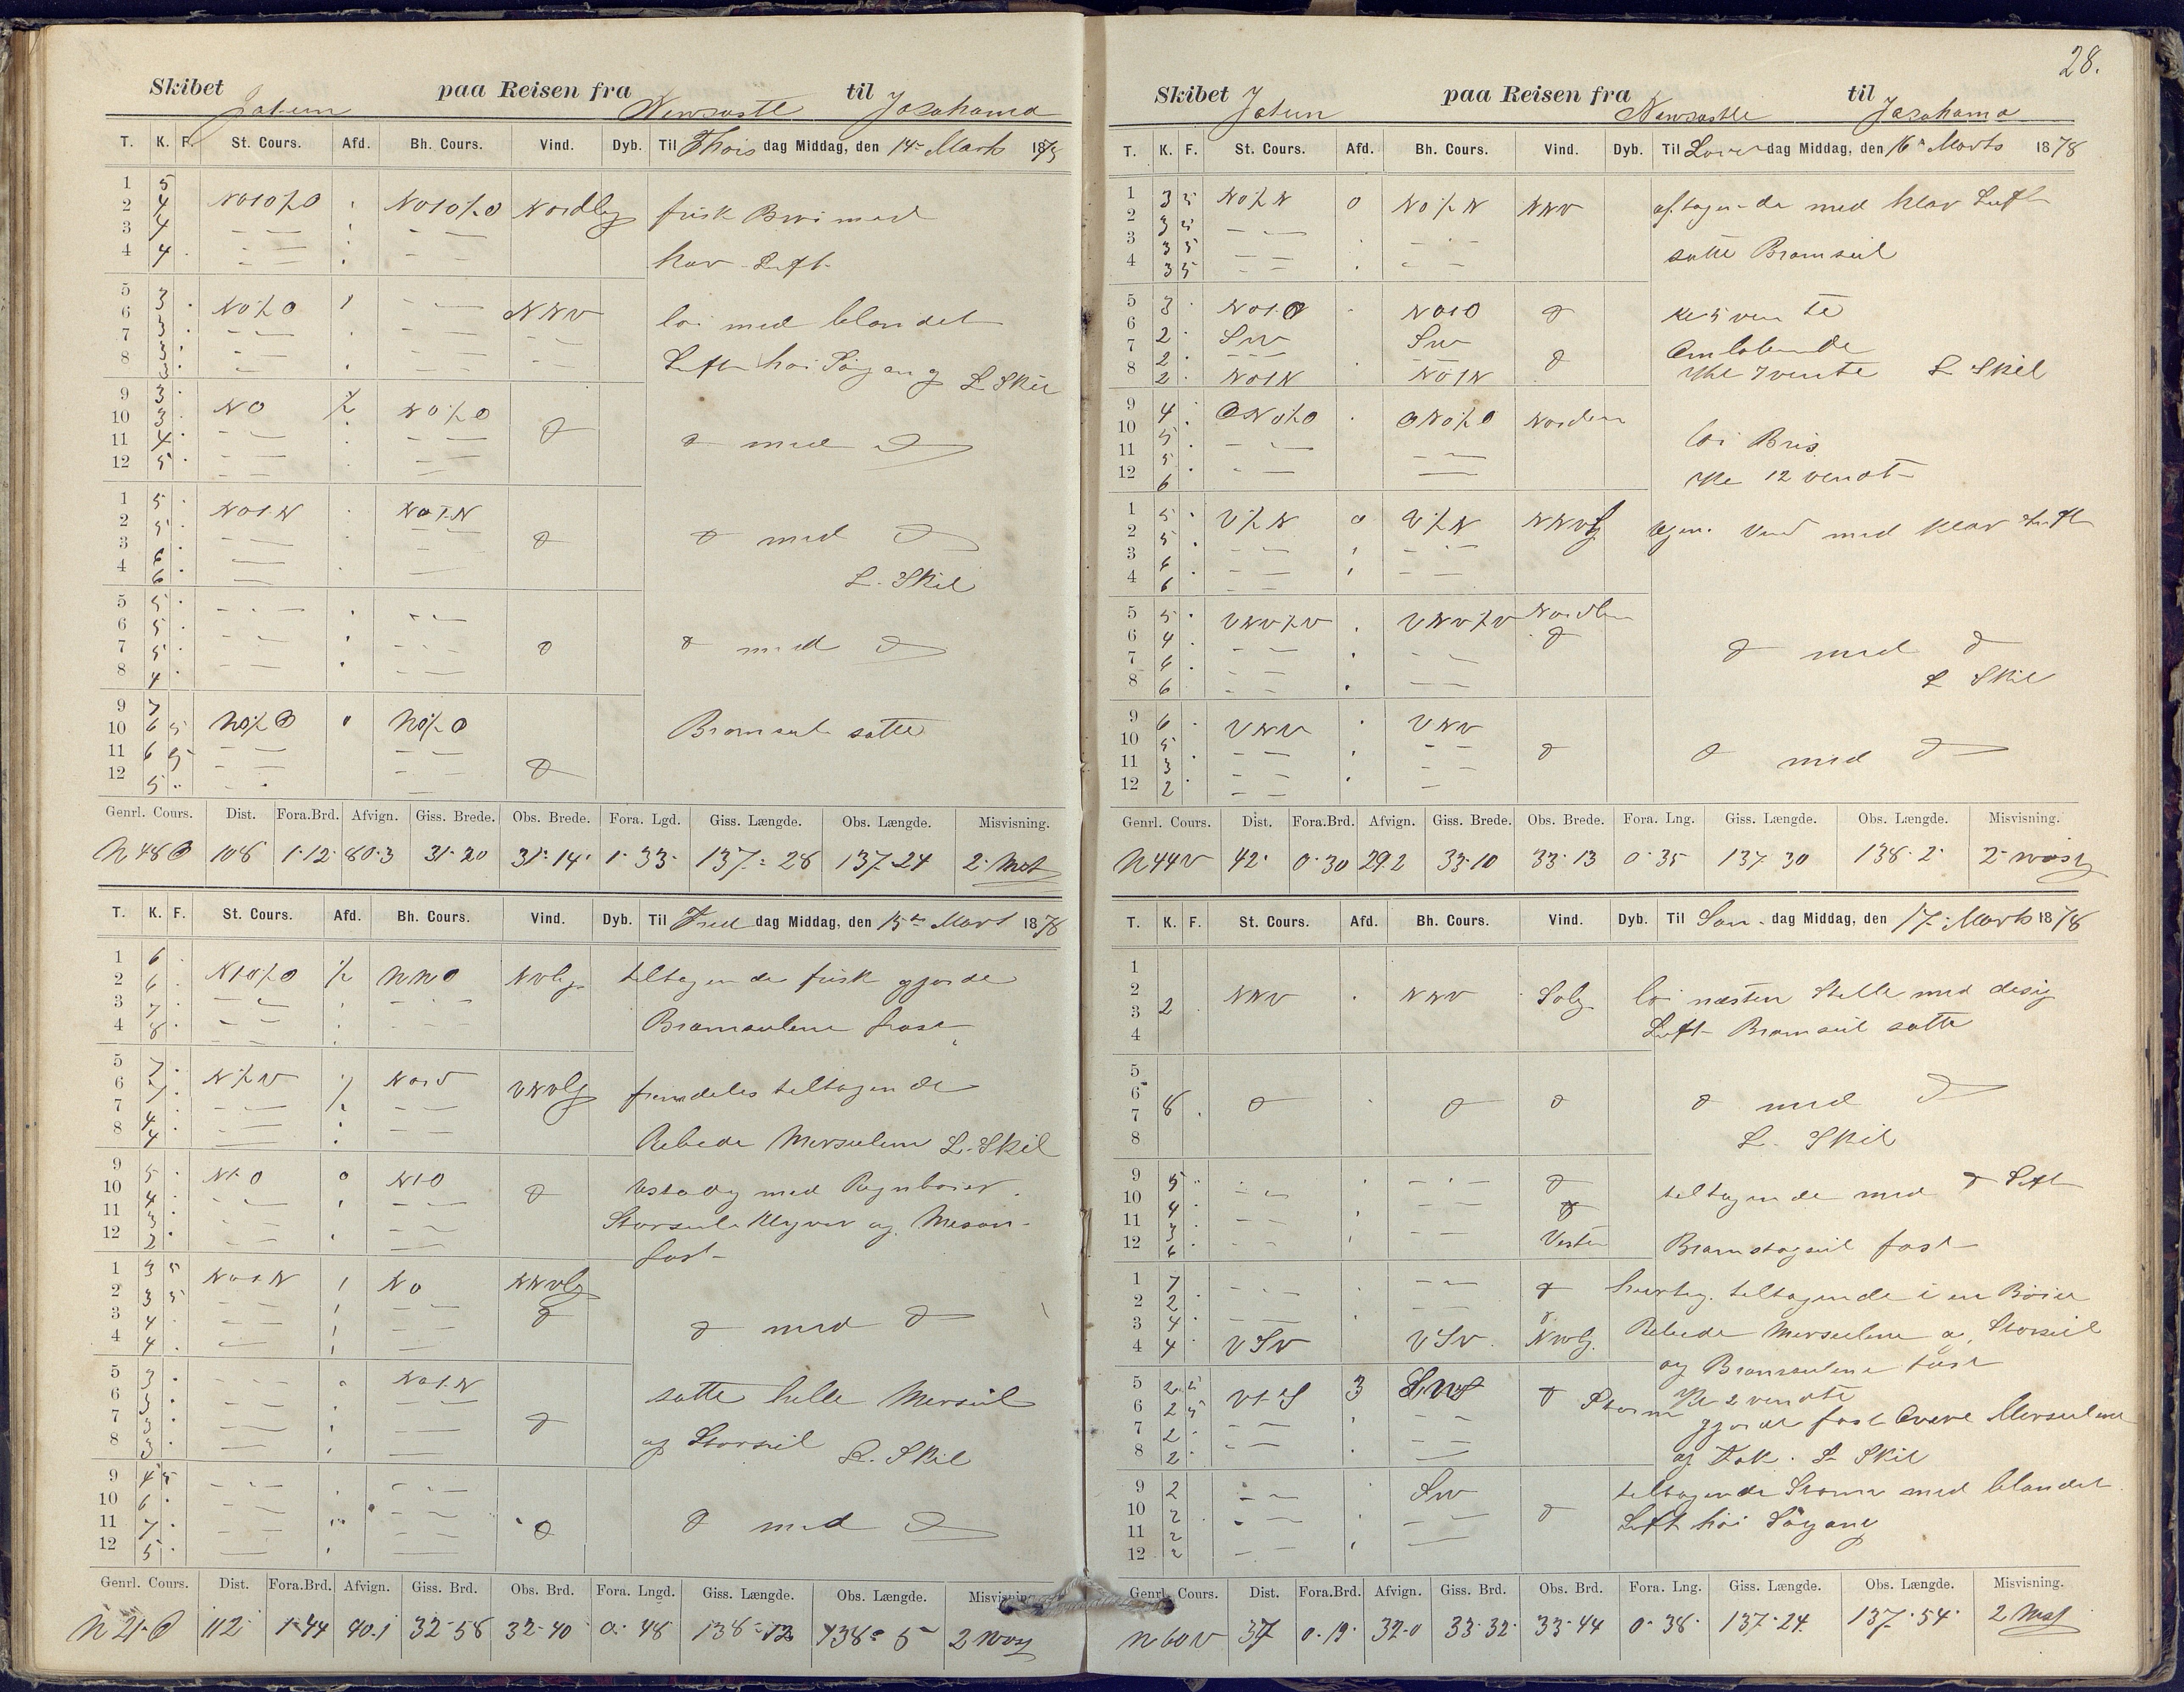 28.
Skibet Jotun paa Reisen fra Newcastle til Jocohama
T. K. F. St. Cours. Afd. Bh. Cours. Vind. Dyb. Til Thors dag Middag, den 14 Marts 1878
1 5
2 4 NO10½O NO10½O Nordlig frisk Bris med
3 4
4 4 klar Luft
5 3 NO½O NNV løi med blandet
6 3
7 3 Luft høi Søgang L. Skil
8 3
9 3 NO ½ NO½O
10 3
11 4 d med d
12 5
1 5 NO1N NO1N
2 5 d d med d
3 6
4 6 L. Skil
5 5
6 5
7 5 d d med d
8 4
9 7
10 6 5 NO½O NO½O Bramseil satte
11 6 5
12 5 d
Genrl. Cours. Dist. Fora.Brd. Afvign. Giss. Brede. Obs. Brede. Fora. Lgd. Giss. Længde. Obs. Længde. Misvisning.
N 48 O 108 1·12 80·3 31·20 31·14 1·33 137·28 137·24 2
T. K. F. St. Cours. Afd. Bh. Cours. Vind. Dyb. Til Fre dag Middag, den 15 Mart 1878
1 6
2 6 N10½O ½ NNO NVlig tiltagende frisk gjorde
3 7
4 8 Bramseilene fast
5 7
6 7 N½V Nord VNVlig fremdeles tiltagende
7 4
8 4 Rebede Merseilene L. Skil
9 5 N1O O N1O
10 4 d Ustadig med Regnboier
11 3 Storseil Klyver og Mesan
12 2 fast
1 3 5 NO1N NO NNVlig
2 3 5 d
3 4 d med d
4 4
5 3 NO1N satte hele Merseil
6 3
7 3 d og Storseil L. Skil
8 3
9 4 5
10 6
11 7 d d med d
12 5
Genrl. Cours. Dist. Fora.Brd. Afvign. Giss. Brd. Obs. Brd. Fora. Lngd. Giss. Længde. Obs. Længde. Misvisning
N 21 O 112 1·44 40·1 32·58 32·40 0·48 138·12 138·5 2
Skibet Jotun paa Reisen fra Newcastle til Jocohama
T. K. F. St. Cours. Afd. Bh. Cours. Vind. Dyb. Til Løver dag Middag, den 16 Marts 1878
1 3 5 NO½N O NO½N NNV aftagende med klar Luft
2 3 5
3 3 5 satte Bramseil
4 3 5
5 3 NO1O NO1O d Kl 5 vente
6 2 SW SW Omløbende
7 2 d Kl 7 vente L Skil
8 2 NO1N NO1N
9 4 ONO½O ONO½O Norden
10 5 løi Bris
11 5
12 6 Kl 12 vendt
1 5 V½N O V½N NNVlig Vind med klar Luft
2 5
3 6
4 6
5 5 VNV½V VNV½V Nordlig
6 4 d d med d
7 6
8 6 L Skil
9 6 VNV VNV
10 5 d d med d
11 3
12 2
Genrl. Cours. Dist. Fora.Brd. Afvign. Giss. Brede. Obs. Brede. Fora. Lng. Giss. Længde. Obs. Længde. Misvisning.
N 44 V 42 0·30 29·2 33·10 33·13 0·35 137·30 138·2 2
T. K. F. St. Cours. Afd. Bh. Cours. Vind. Dyb. Til Søn dag Middag, den 17 Marts 1878
1
2 NNV NNV Solig løi næsten Stille med disig
3 2
4 Luft Bramseil satte
5
6 8 d d d d med d
7
8 L. Skil
9 5 d tiltagende med d Luft
10 4 d
11 3
12 6 Vesten Bramstagseil fast
1 7 d hurtig tiltagende i en Böie
2 2
3 4 d Rebede Merseilene og Storseil
4 4 VSV VSV NVlig og Bramseilene fast
5 2 5 V1S 3 SWS d Storm Kl 2 vendte
6 2 5 gjorde fast Øvre Merseilene
7 2
8 2 og Fok. L Skil
9 2 SW tiltagende Storm med blandet
10 2 d Luft høi Søgang
11 2
12 2
Genrl. Cours. Dist. Fora.Brd. Afvign. Giss. Brd. Obs. Brd. Fora. Lng. Giss. Længde. Obs. Længde. Misvisning.
N 60 V 37 0·19 32·0 33·32 33·44 0·38 137·24 137·54 2